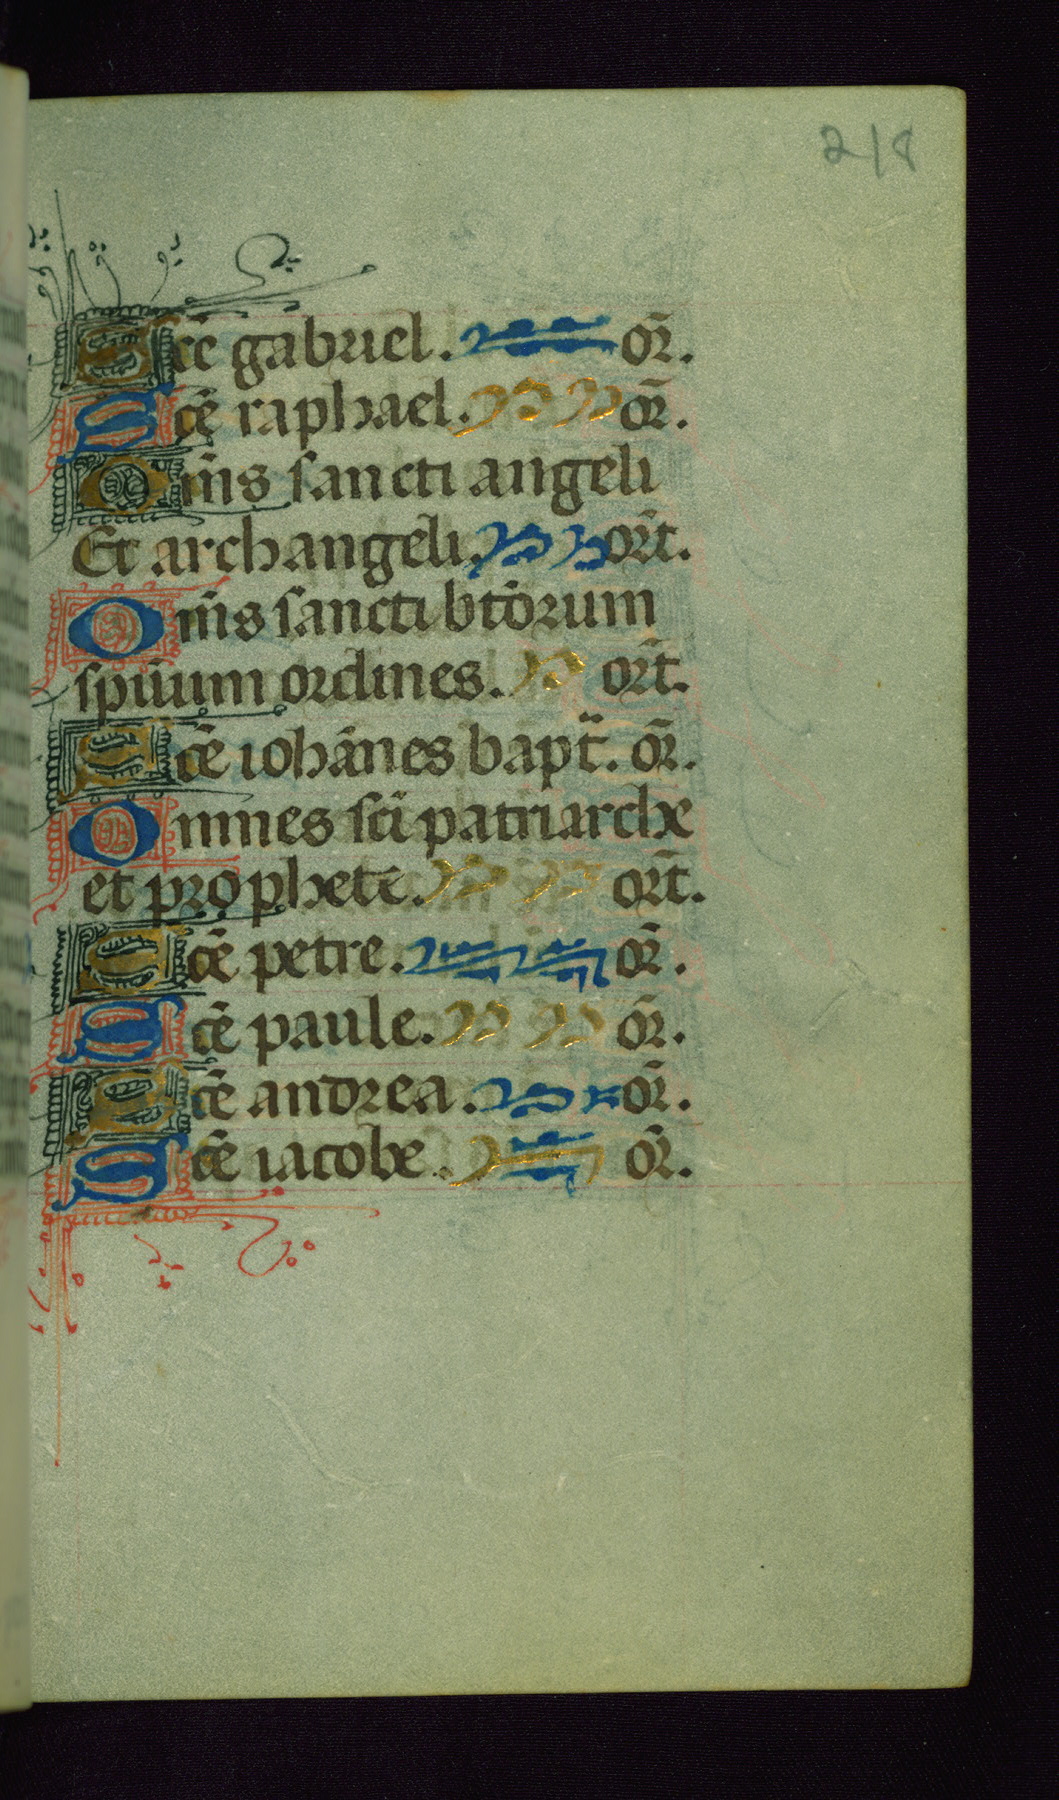 218
Sc̄e gabriel. or̄.
Sc̄e raphael. or̄.
Om̄s sancti angeli
Et archangeli. or̄t.
Om̄s sancti bt̄orum
spūum ordines. or̄t.
Sc̄e iohānes bapt̄. or̄.
Omnes sc̄i patriarche
et prophete. or̄t.
Sc̄e petre. or̄.
Sc̄e paule. or̄.
Sc̄e andrea. or̄.
Sc̄e iacobe. or̄.